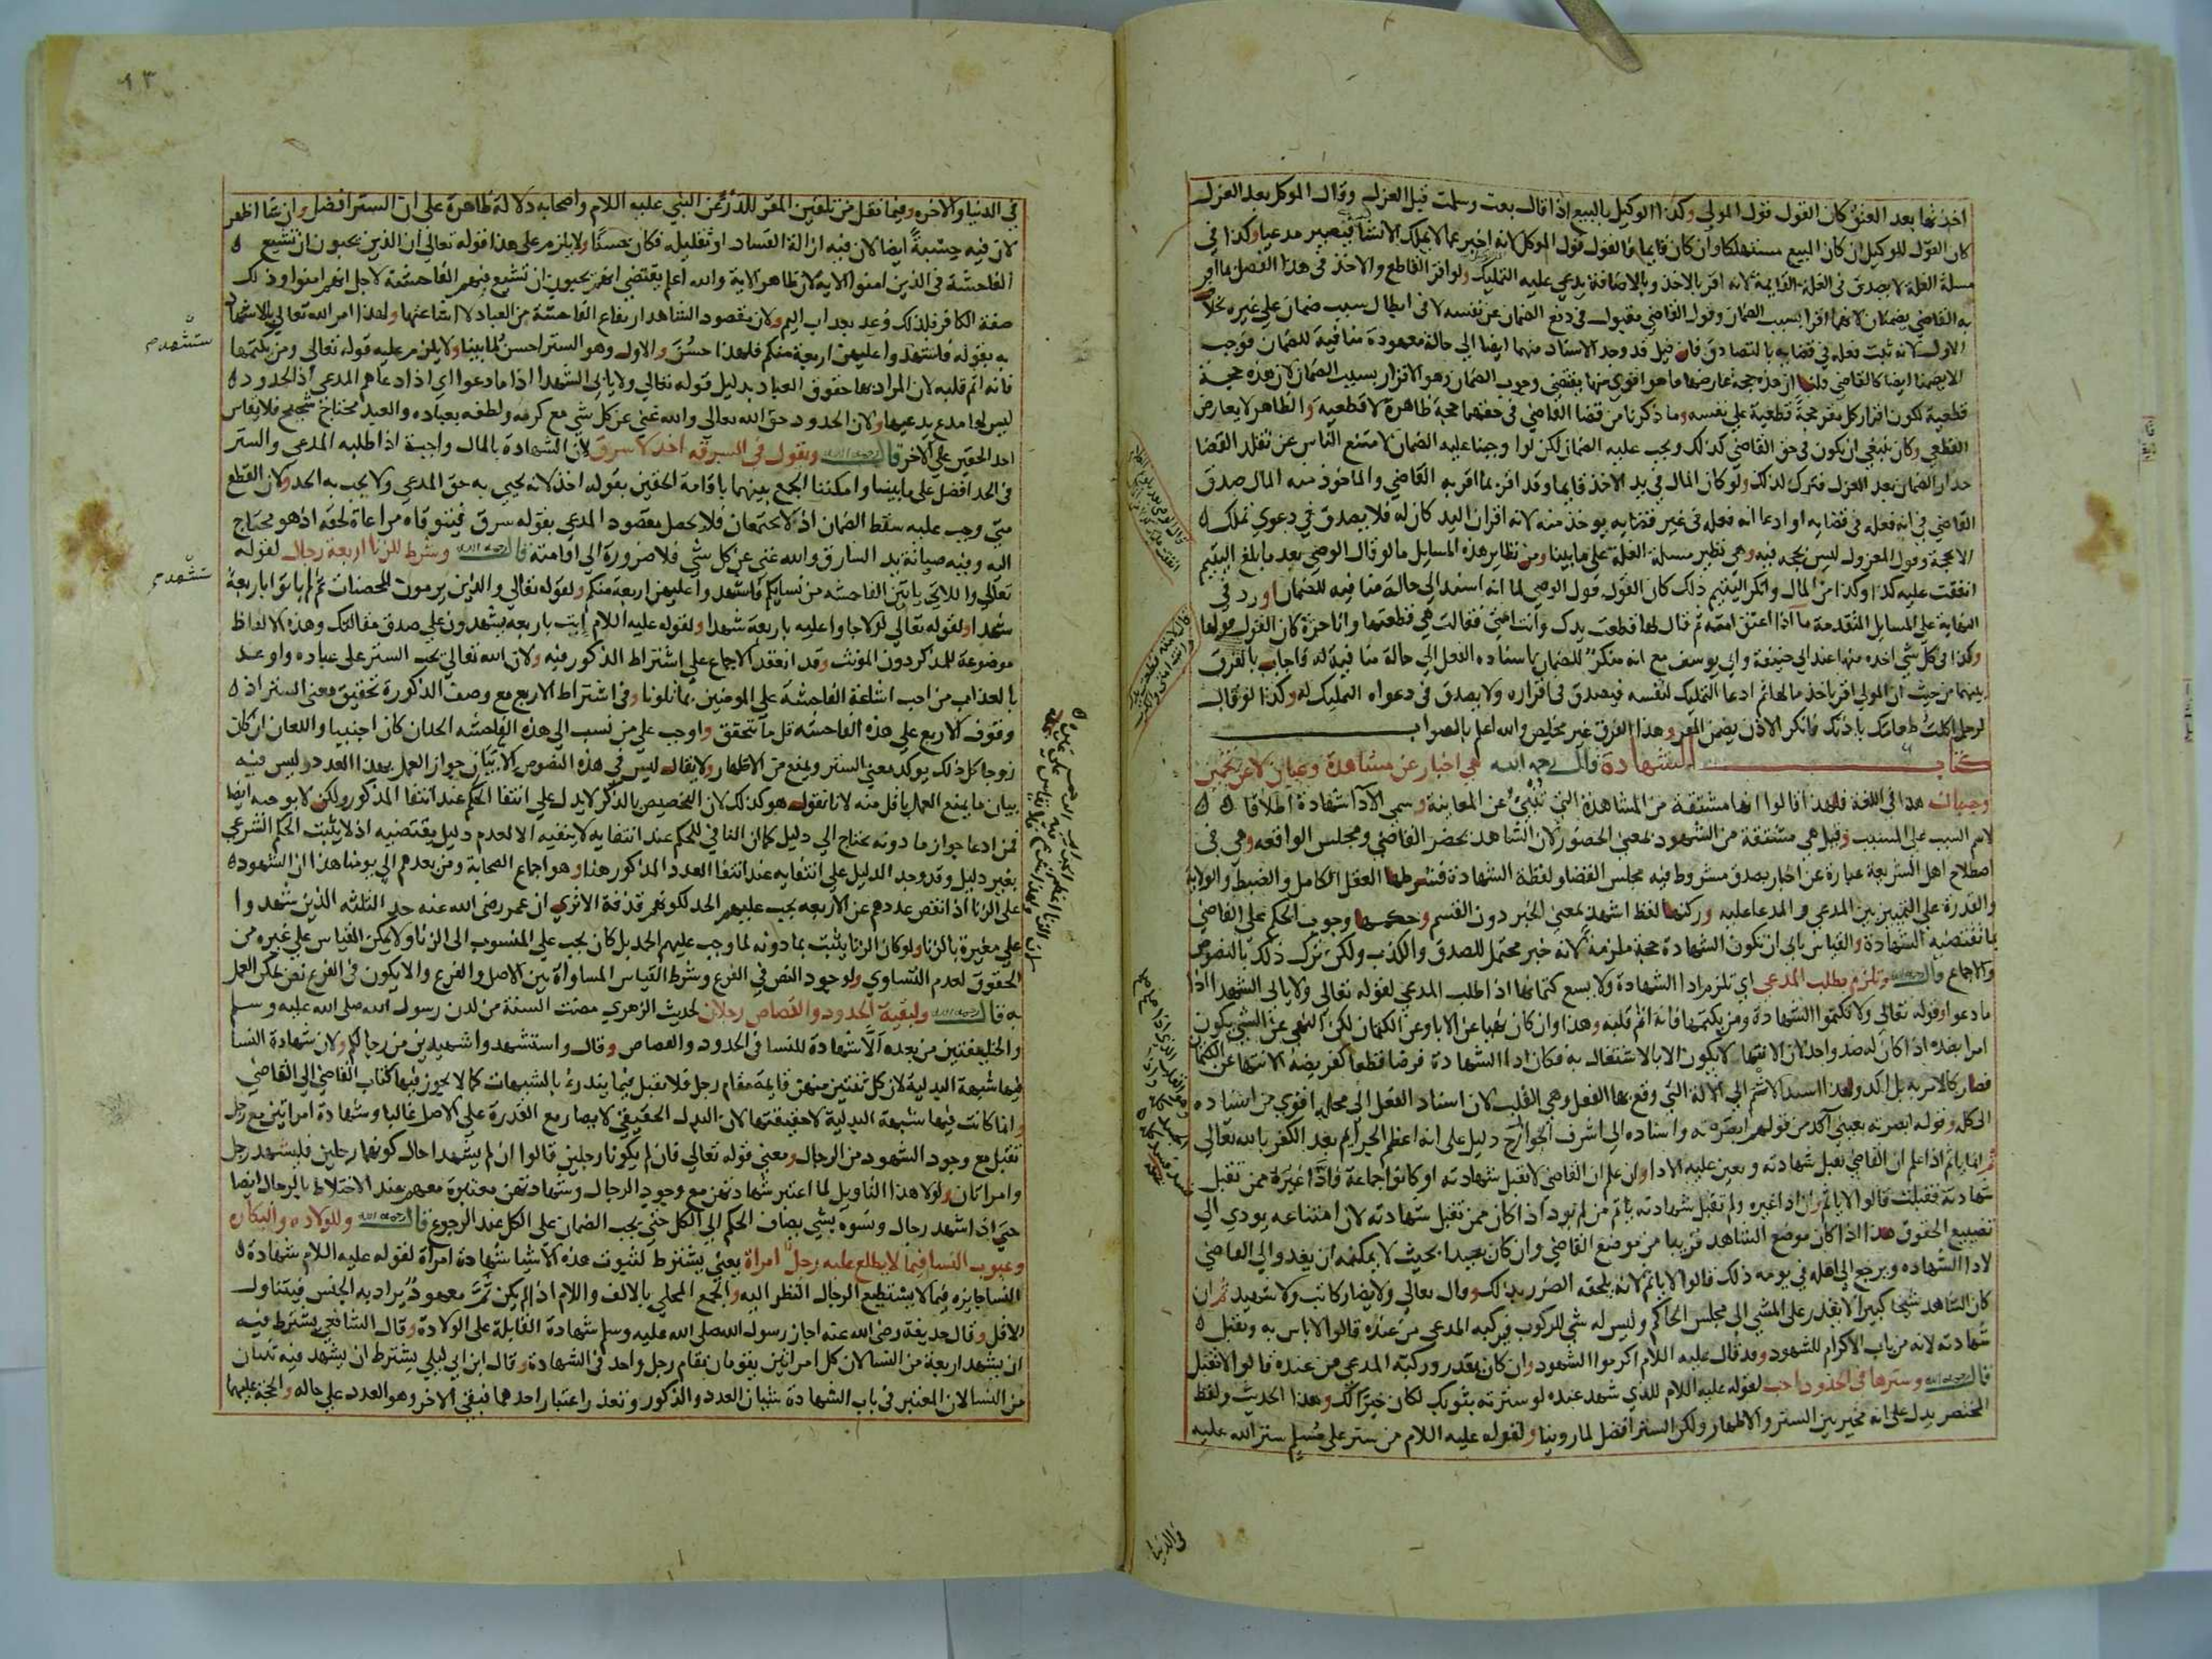 اخذتها بعد العتق كان القول قول المولي وكذا الوكيل بالبيع اذا قال بعت وسلمت قبل العزل وقال الموكل بعد العزل
كان القول للوكيل ان كان المبيع مستهلكا وان كان قايما فالقول قول الموكل لانه اخبر عما لا يملك الانشا فيصير مدعيا وكذا في
مسلة الغلة لا يصدق في الغلة القايمة لانه اقر بالاخذ وبالاضافة يدعي عليه التمليك ولو اقر القاطع والاخذ في هذا الفصل بما اقر
به القاضي يضمنان لانهما اقرا بسبب الضمان وقول القاضي مقبول في دفع الضمان عن نفسه لا في ابطال سبب ضمان علي غيره بخلاف
الاول لانه ثبت فعله في قضايه بالتصادق فان قيل قد وجد الاسناد منهما ايضا الي حالة معهودة منافية للضمان فوجب
الا يضمنا ايضا كالقاضي قلنا ان هذه حجة عارضها ما هو اقوي منها يقتضي وجوب الضمان وهو الاقرار بسبب الضمان لان هذه حجة
قطعية لكون اقرار كل مقر حجة قطعية علي نفسه وما ذكرنا من قضا القاضي في حقهما حجة ظاهرة لا قطعية والظاهر لا يعارض
القطعي وكان ينبغي ان يكون في حق القاضي كذلك ويجب عليه الضمان لكن لو اوجبنا عليه الضمان لامتنع الناس عن تقلد القضا
حذار الضمان بعد العزل فترك لذلك ولو كان المال في يد الاخذ قايما وقد اقر بما اقر به القاضي والماخوذ منه المال صدق
القاضي في انه فعله في قضايه او ادعا انه فعله في غير قضايه يوخذ منه لانه اقر ان اليد كان له فلا يصدق في دعوي تملك
الا بحجة وقول المعزول ليس بحجة فيه وهي نظير مسلة الغلة علي ما بينا ومن نظاير هذه المسايل ما لو قال الوصي بعد ما بلغ اليتيم
انفقت عليه كذا وكذا من المال وانكر اليتيم ذلك كان القول قول الوصي لما انه اسند الي حالة منافية للضمان اورد في
النهاية علي المسايل المتقدمة ما اذا اعتق امته ثم قال لها قطعت يدك وانت امتي فقالت هي قطعتها وانا حرة كان القول قولها
وكذا في كل شي اخذه منها عند ابي حنيفة وابي يوسف مع انه منكر للضمان باسناده الفعل الي حالة منافية له فاجاب بالفرق
بينهما من حيث ان المولي اقر باخذ مالها ثم ادعا التمليك لنفسه فيصدق في اقراره ولا يصدق في دعواه التمليك له وكذا لو قال
لرجل اكلت طعامك باذنك فانكر الاذن يضمن المقر وهذا الفرق غير مخلص والله اعلم بالصواب
كتاب الشهادة قال رحمه الله هي اخبار عن مشاهدة وعيان لا عن تخمين
وحسبان هذا في اللغة فلهذا قالوا انها مشتقة من المشاهدة التي تنبئ عن المعاينة وسمي الادا شهادة اطلاقا
لاسم السبب علي المسبب وقيل هي مشتقة من الشهود بمعني الحضور لان الشاهد يحضر القاضي ومجلس الواقعه وهي في
اصطلاح اهل الشريعة عبارة عن اخبار بصدق مشروط فيه مجلس القضا ولفظة الشهادة فشرطها العقل الكامل والضبط والولاية
والقدرة علي التمييز بين المدعي والمدعا عليه وركنها لفظ اشهد بمعني الخبر دون القسم وحكمها وجوب الحكم علي القاضي
بما تقتضيه الشهادة والقياس يابي ان تكون الشهادة حجة ملزمة لانه خبر محتمل للصدق والكذب ولكن ترك ذلك بالنصوص
والاجماع قال رحمه الله وتلزم بطلب المدعي اي تلزم ادا الشهادة ولا يسع كتمانها اذا طلب المدعي لقوله تعالي ولا يابي الشهدا اذا
ما دعوا وقوله تعالي ولا تكتموا الشهادة ومن يكتمها فانه اثم قلبه وهذا وان كان نهيا عن الابا وعن الكتمان لكن النهي عن الشي يكون
امرا بضده اذا كان له ضد واحد لان الانتها لا يكون الا بالاشتغال به فكان ادا الشهادة فرضا قطعا كفريضة الانتها عن الكتمان
فصار كالامر به بل اكد ولهذا اسند الاثم الي الالة التي وقع بها الفعل وهي القلب لان اسناد الفعل الي محله اقوي من اسناده
الي كله وقوله ابصرته بعيني آكد من قولهم ابصرته واسناده الي اشرف الجوارح دليل علي انه اعظم الجرايم بعد الكفر بالله تعالي
ثم انما ياثم اذا علم ان القاضي يقبل شهادته وتعين عليه الادا وان علم ان القاضي لا تقبل شهادته او كانوا جماعة فادا غيره ممن تقبل
شهادته فقبلت قالوا لا ياثم وان ادا غيره ولم تقبل شهادته ياثم من لم يود اذا كان ممن تقبل شهادته لان امتناعه يودي الي
تضييع الحقوق هذا اذا كان موضع الشاهد قريبا من موضع القاضي وان كان بعيدا بحيث لا يمكنه ان يغدو الي القاضي
لادا الشهاده ويرجع الي اهله في يومه ذلك قالوا لا ياثم لانه يلحقه الضرر بذلك وقال تعالي ولا يضار كاتب ولا شهيد ثم ان
كان الشاهد شيخا كبيرا لا يقدر علي المشي الي مجلس الحاكم وليس له شي للركوب فركبه المدعي من عنده قالوا لا باس به وتقبل
شهادته لانه من باب الاكرام للشهود وقد قال عليه السلام اكرموا الشهود وان كان يقدر وركبه المدعي من عنده قالوا لا تقبل
قال رحمه الله وسترها في الحدود احب لقوله عليه السلام للذي شهد عنده لو سترته بثوبك لكان خيرا لك وهذا الحديث ولفظ
المختصر يدل علي انه مخير بين الستر والاظهار ولكن الستر افضل لما روينا ولقوله عليه السلام من ستر علي مسلم ستر الله عليه
في الدنيا
٩٣
في الدنيا والاخره وفيما نقل من تلقين المقر للدرء عن النبي عليه السلام واصحابه دلالة ظاهرة علي ان الستر افضل وان شا اظهر
لان فيه حسبة ايضا لان فيه ازالة الفساد او تقليله فكان حسنا ولا يلزم علي هذا قوله تعالي ان الذين يحبون ان تشيع
الفاحشة في الذين امنوا الاية لان ظاهر الاية والله اعلم يقتضي انهم يحبون ان تشيع فيهم الفاحشة لاجل انهم امنوا وذلك
صفة الكافر فلذلك وعد بعذاب اليم ولان مقصود الشاهد ارتفاع الفاحشة من العباد لا اشاعتها ولهذا امر الله تعالي بالاشهاد
به بقوله فاستشهدوا عليهن اربعة منكم فلهذا حسن والاول وهو الستر احسن لما بينا ولا يلزم عليه قوله تعالي ومن يكتمها
فانه اثم قلبه لان المراد بها حقوق العباد بدليل قوله تعالي ولا يابي الشهدا اذا ما دعوا اي اذا دعاهم المدعي اذ الحدود
ليس لها مدع يدعيها ولان الحدود حق الله تعالي والله غني عن كل شي مع كرمه ولطفه بعباده والعبد محتاج شحيح فلا يقاس
احد الحقين علي الاخر قال رحمه الله ويقول في السرقه اخذ لا سرق لان الشهادة بالمال واجبة اذا طلبه المدعي والستر
في الحد افضل علي ما بينا وامكننا الجمع بينهما باقامة الحقين بقوله اخذ لانه يحيي به حق المدعي ولا يجب به الحد ولان القطع
متي وجب عليه سقط الضمان اذ لا يجتمعان فلا يحصل مقصود المدعي بقوله سرق فيتوقاه مراعاة لحقه اذ هو محتاج
اليه وفيه صيانة يد السارق والله غني عن كل شي فلا ضرورة الي اقامته قال رحمه الله وشرط للزنا اربعة رجال لقوله
تعالي واللاتي ياتين الفاحشه من نسايكم فاستشهدوا عليهن اربعة منكم ولقوله تعالي والذين يرمون المحصنات ثم لم ياتوا باربعة
شهدا ولقوله تعالي لولا جاوا عليه باربعة شهدا ولقوله عليه السلام ايت باربعه يشهدون علي صدق مقالتك وهذه الالفاظ
موضوعة للمذكر دون المونث وقد انعقد الاجماع علي اشتراط الذكور فيه ولان الله تعالي يحب الستر علي عباده واوعد
بالعذاب من احب اشاعة الفاحشة علي المومنين بما تلونا وفي اشتراط الاربع مع وصف الذكورة تحقيق معني الستر اذ
وقوف الاربع علي هذه الفاحشه قل ما تحقق واوجب علي من نسب الي هذه الفاحشه الحد ان كان اجنبيا واللعان ان كان
زوجا كل ذلك يوكد معني الستر ويمنع من الاظهار ولا يقال ليس في هذه النصوص الا بيان جواز العمل بهذا العدد وليس فيه
بيان ما يمنع العمل باقل منه لانا نقول هو كذلك لان التخصيص بالذكر لا يدل علي انتفا الحكم عند انتفا المذكور ولكن لا يوجبه ايضا
فمن ادعا جواز ما دونه يحتاج الي دليل كما ان النافي للحكم عند انتفايه لا ينفيه الا لعدم دليل يقتضيه اذ لا يثبت الحكم الشرعي
بغير دليل وقد وجد الدليل علي انتفايه عند انتفا العدد المذكور هنا وهو اجماع الصحابة ومن بعدهم الي يومنا هذا ان الشهود
علي الزنا اذا نقص عددهم عن الاربعه يجب عليهم الحد لكونهم قذفة الا تري ان عمر رضي الله عنه حد الثلثه الذين شهدوا
علي مغيرة بالزنا ولو كان الزنا يثبت بما دونه لما وجب عليهم الحد بل كان يجب علي المنسوب الي الزنا ولا يمكن القياس علي غيره من
الحقوق لعدم التساوي ولوجود النص في الفرع وشرط القياس المساواة بين الاصل والفرع والا يكون في الفرع نص يمكن العمل
به قال رحمه الله ولبقية الحدود والقصاص رجلان لحديث الزهري مضت السنة من لدن رسول الله صلي الله عليه وسلم
والخليفتين من بعده الا شهادة للنسا في الحدود والقصاص وقال واستشهدوا شهيدين من رجالكم ولان شهادة النسا
فيها شبهة البدلية لان كل ثنتين منهن قايمة مقام رجل فلا تقبل فيما يندرء بالشبهات كما لا يجوز فيها كتاب القاضي الي القاضي
وانما كانت فيها شبهة البدلية لا حقيقتها لان البدل الحقيقي لا يصار مع القدرة علي الاصل غالبا وشهادة امراتين مع رجل
تقبل مع وجود الشهود من الرجال ومعني قوله تعالي فان لم يكونا رجلين قالوا ان لم يشهدا حال كونهما رجلين فليشهد رجل
وامراتان ولولا هذا التاويل لما اعتبر شهادتهن مع وجود الرجال وشهادتهن معتبرة معهم عند الاختلاط بالرجال ايضا
حتي اذا شهد رجال ونسوه بشي يضاف الحكم الي الكل حتي يجب الضمان علي الكل عند الرجوع قال رحمه الله وللولاده والبكاره
وعيوب النسا فيما لا يطلع عليه رجل امراة يعني يشترط لثبوت هذه الاشيا شهادة امراة لقوله عليه السلام شهادة
النسا جايزه فيما لا يستطيع الرجال النظر اليه والجمع المحلي بالالف واللام اذا لم يكن ثم معهود يراد به الجنس فيتناول
الاقل وقال حذيفة رضي الله عنه اجاز رسول الله صلي الله عليه وسلم شهادة القابلة علي الولادة وقال الشافعي يشترط فيه
ان يشهد اربعة من النسا لان كل امراتين يقومان مقام رجل واحد في الشهادة وقال ابن ابي ليلي يشترط ان يشهد فيه ثنتان
من النسا لان المعتبر في باب الشهادة شيئان العدد والذكور وتعذر اعتبار احدهما فبقي الاخر وهو العدد علي حاله والحجة عليهما